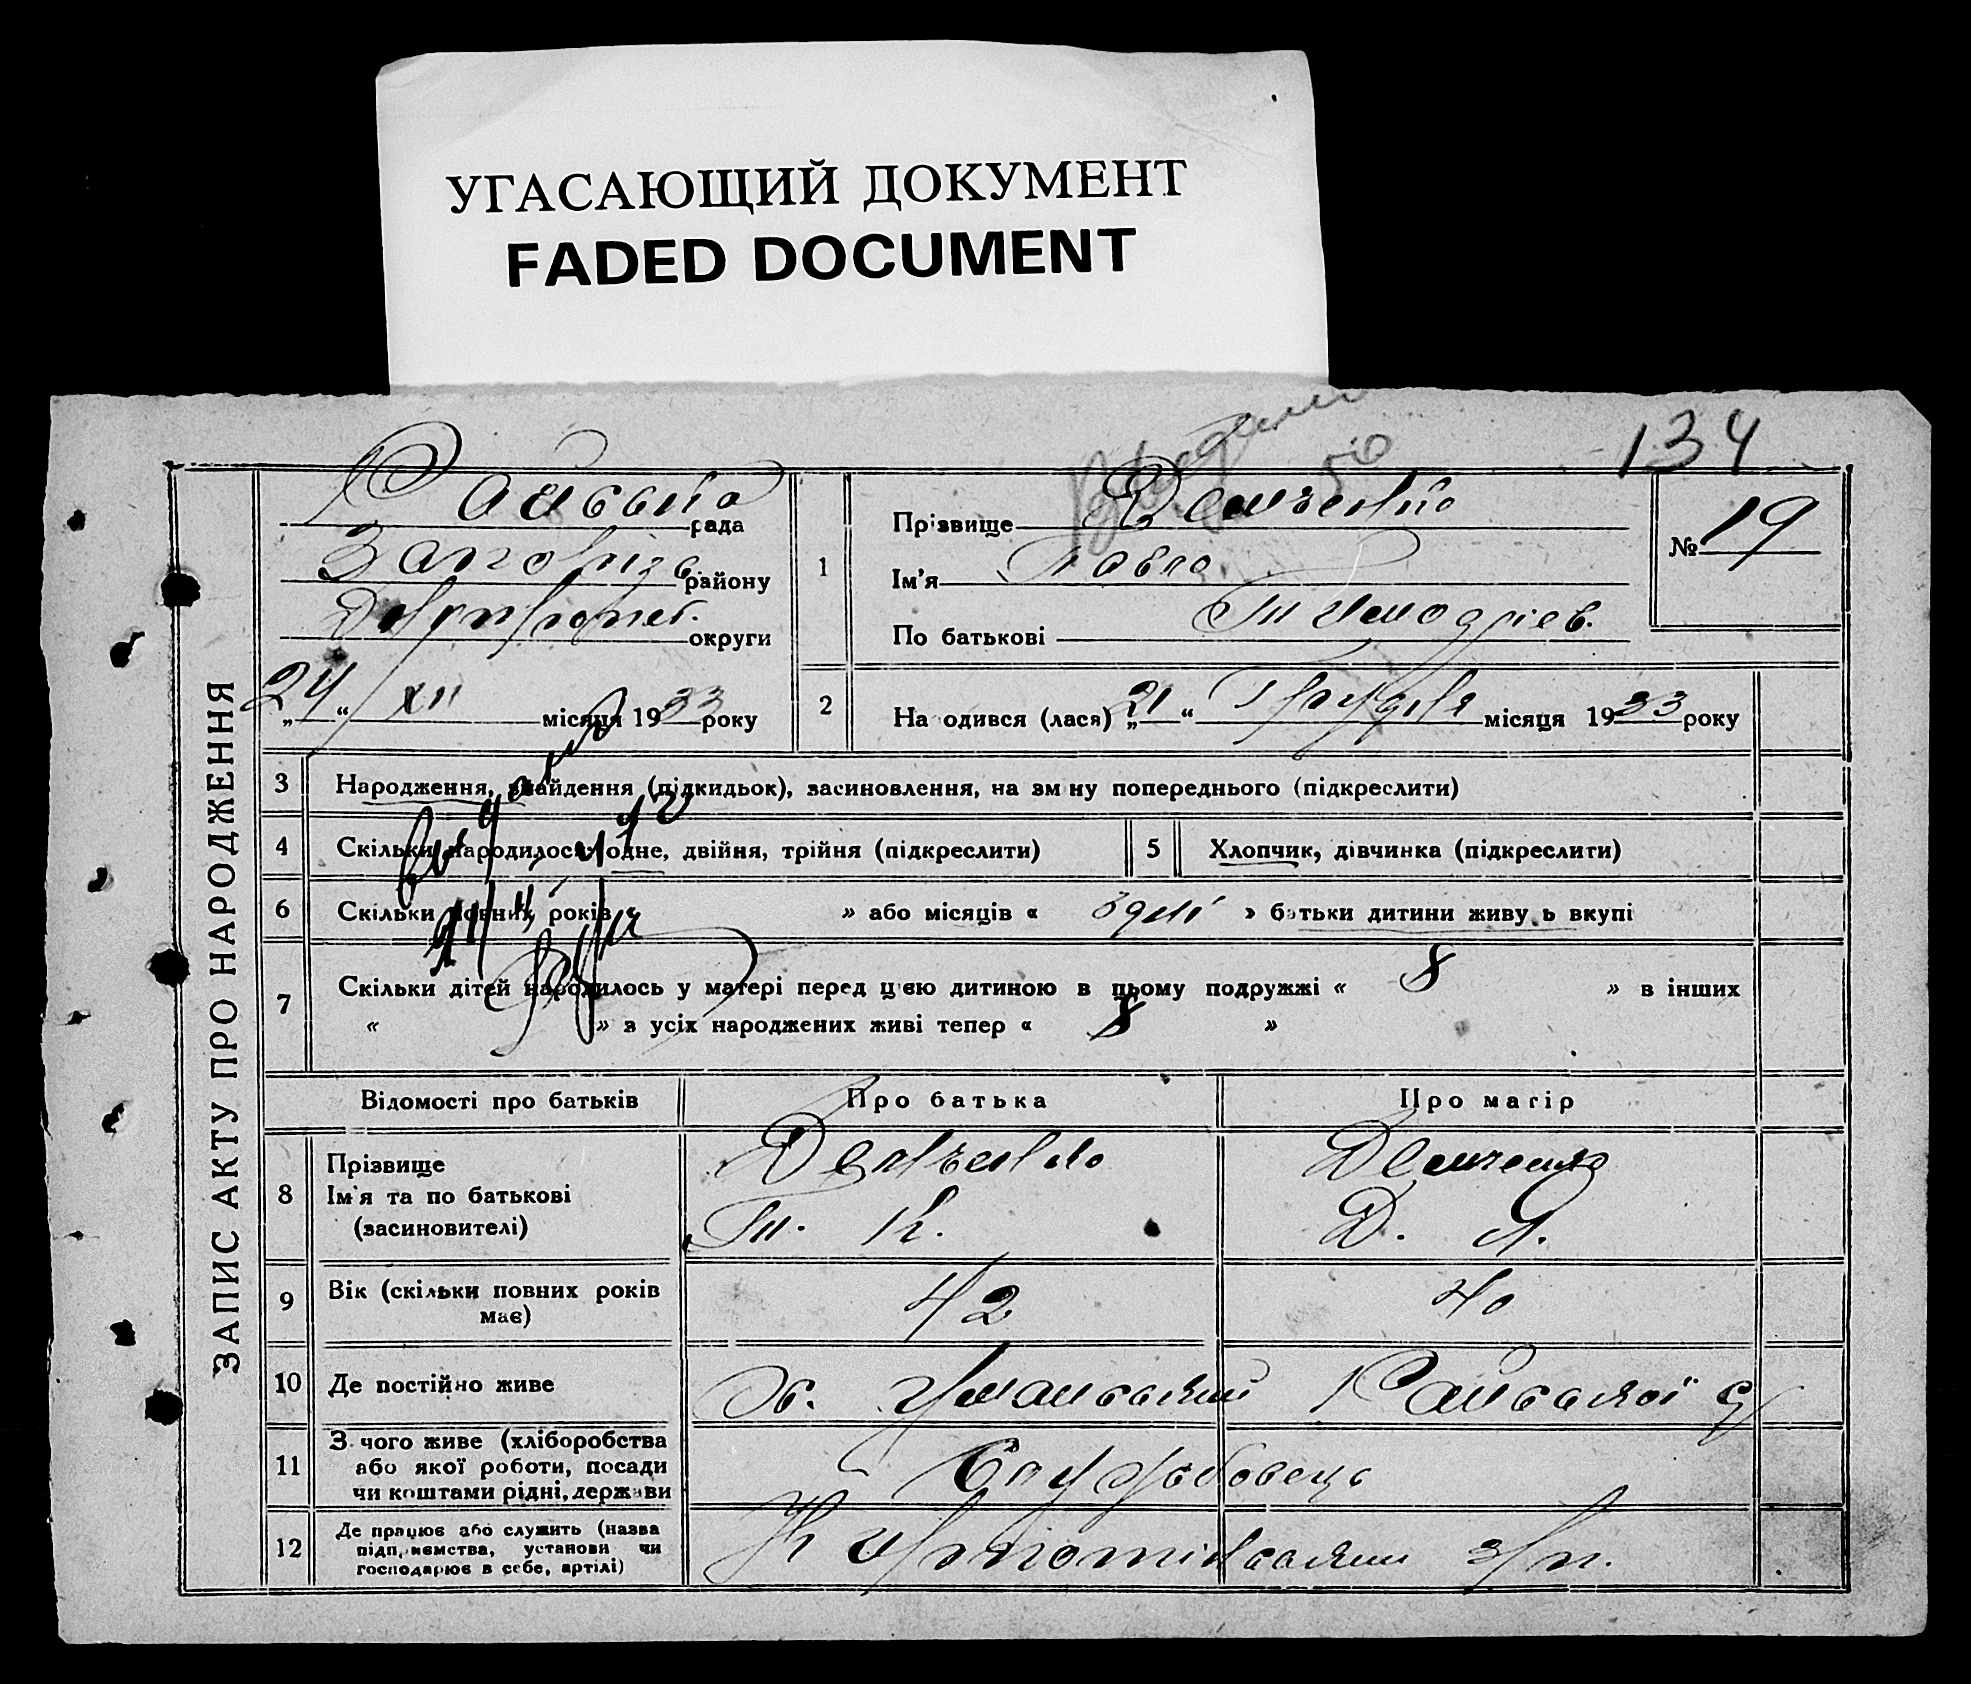 УГАСАЮЩИЙ ДОКУМЕНТ
FADED DOCUMENT
134
50
ЗАПИС АКТУ ПРО НАРОДЖЕННЯ
Райська рада
Запоріз. району
Дніпропет. округи
„24“ XII місяця 1933 року
1
Прізвище Демченко
Ім'я Павло
По батькові Тимофіїв.
№ 19
2
Народився (лася) „21“ Грудня місяця 1933 року
3 Народження, знайдення (підкидьок), засиновлення, на зміну попереднього (підкреслити)
4 Скільки народилося: одне, двійня, трійня (підкреслити)
5 Хлопчик, дівчинка (підкреслити)
6 Скільки повних років „ » або місяців « » батьки дитини живуть вкупі
7 Скільки дітей народилось у матері перед цією дитиною в цьому подружжі « 8 » в інших
« » з усіх народжених живі тепер « 8 »
Відомості про батьків Про батька Про матір
8 Прізвище
Ім'я та по батькові
(засиновителі)
Демченко
Т. К.
Демченко
Д. Я.
9 Вік (скільки повних років
має)
42 40
10 Де постійно живе
х. Райської с/
11 З чого живе (хліборобства
або якої роботи, посади
чи коштами рідні, держави
12 Де працює або служить (назва
підприємства, установи чи
господарює в себе, артілі)